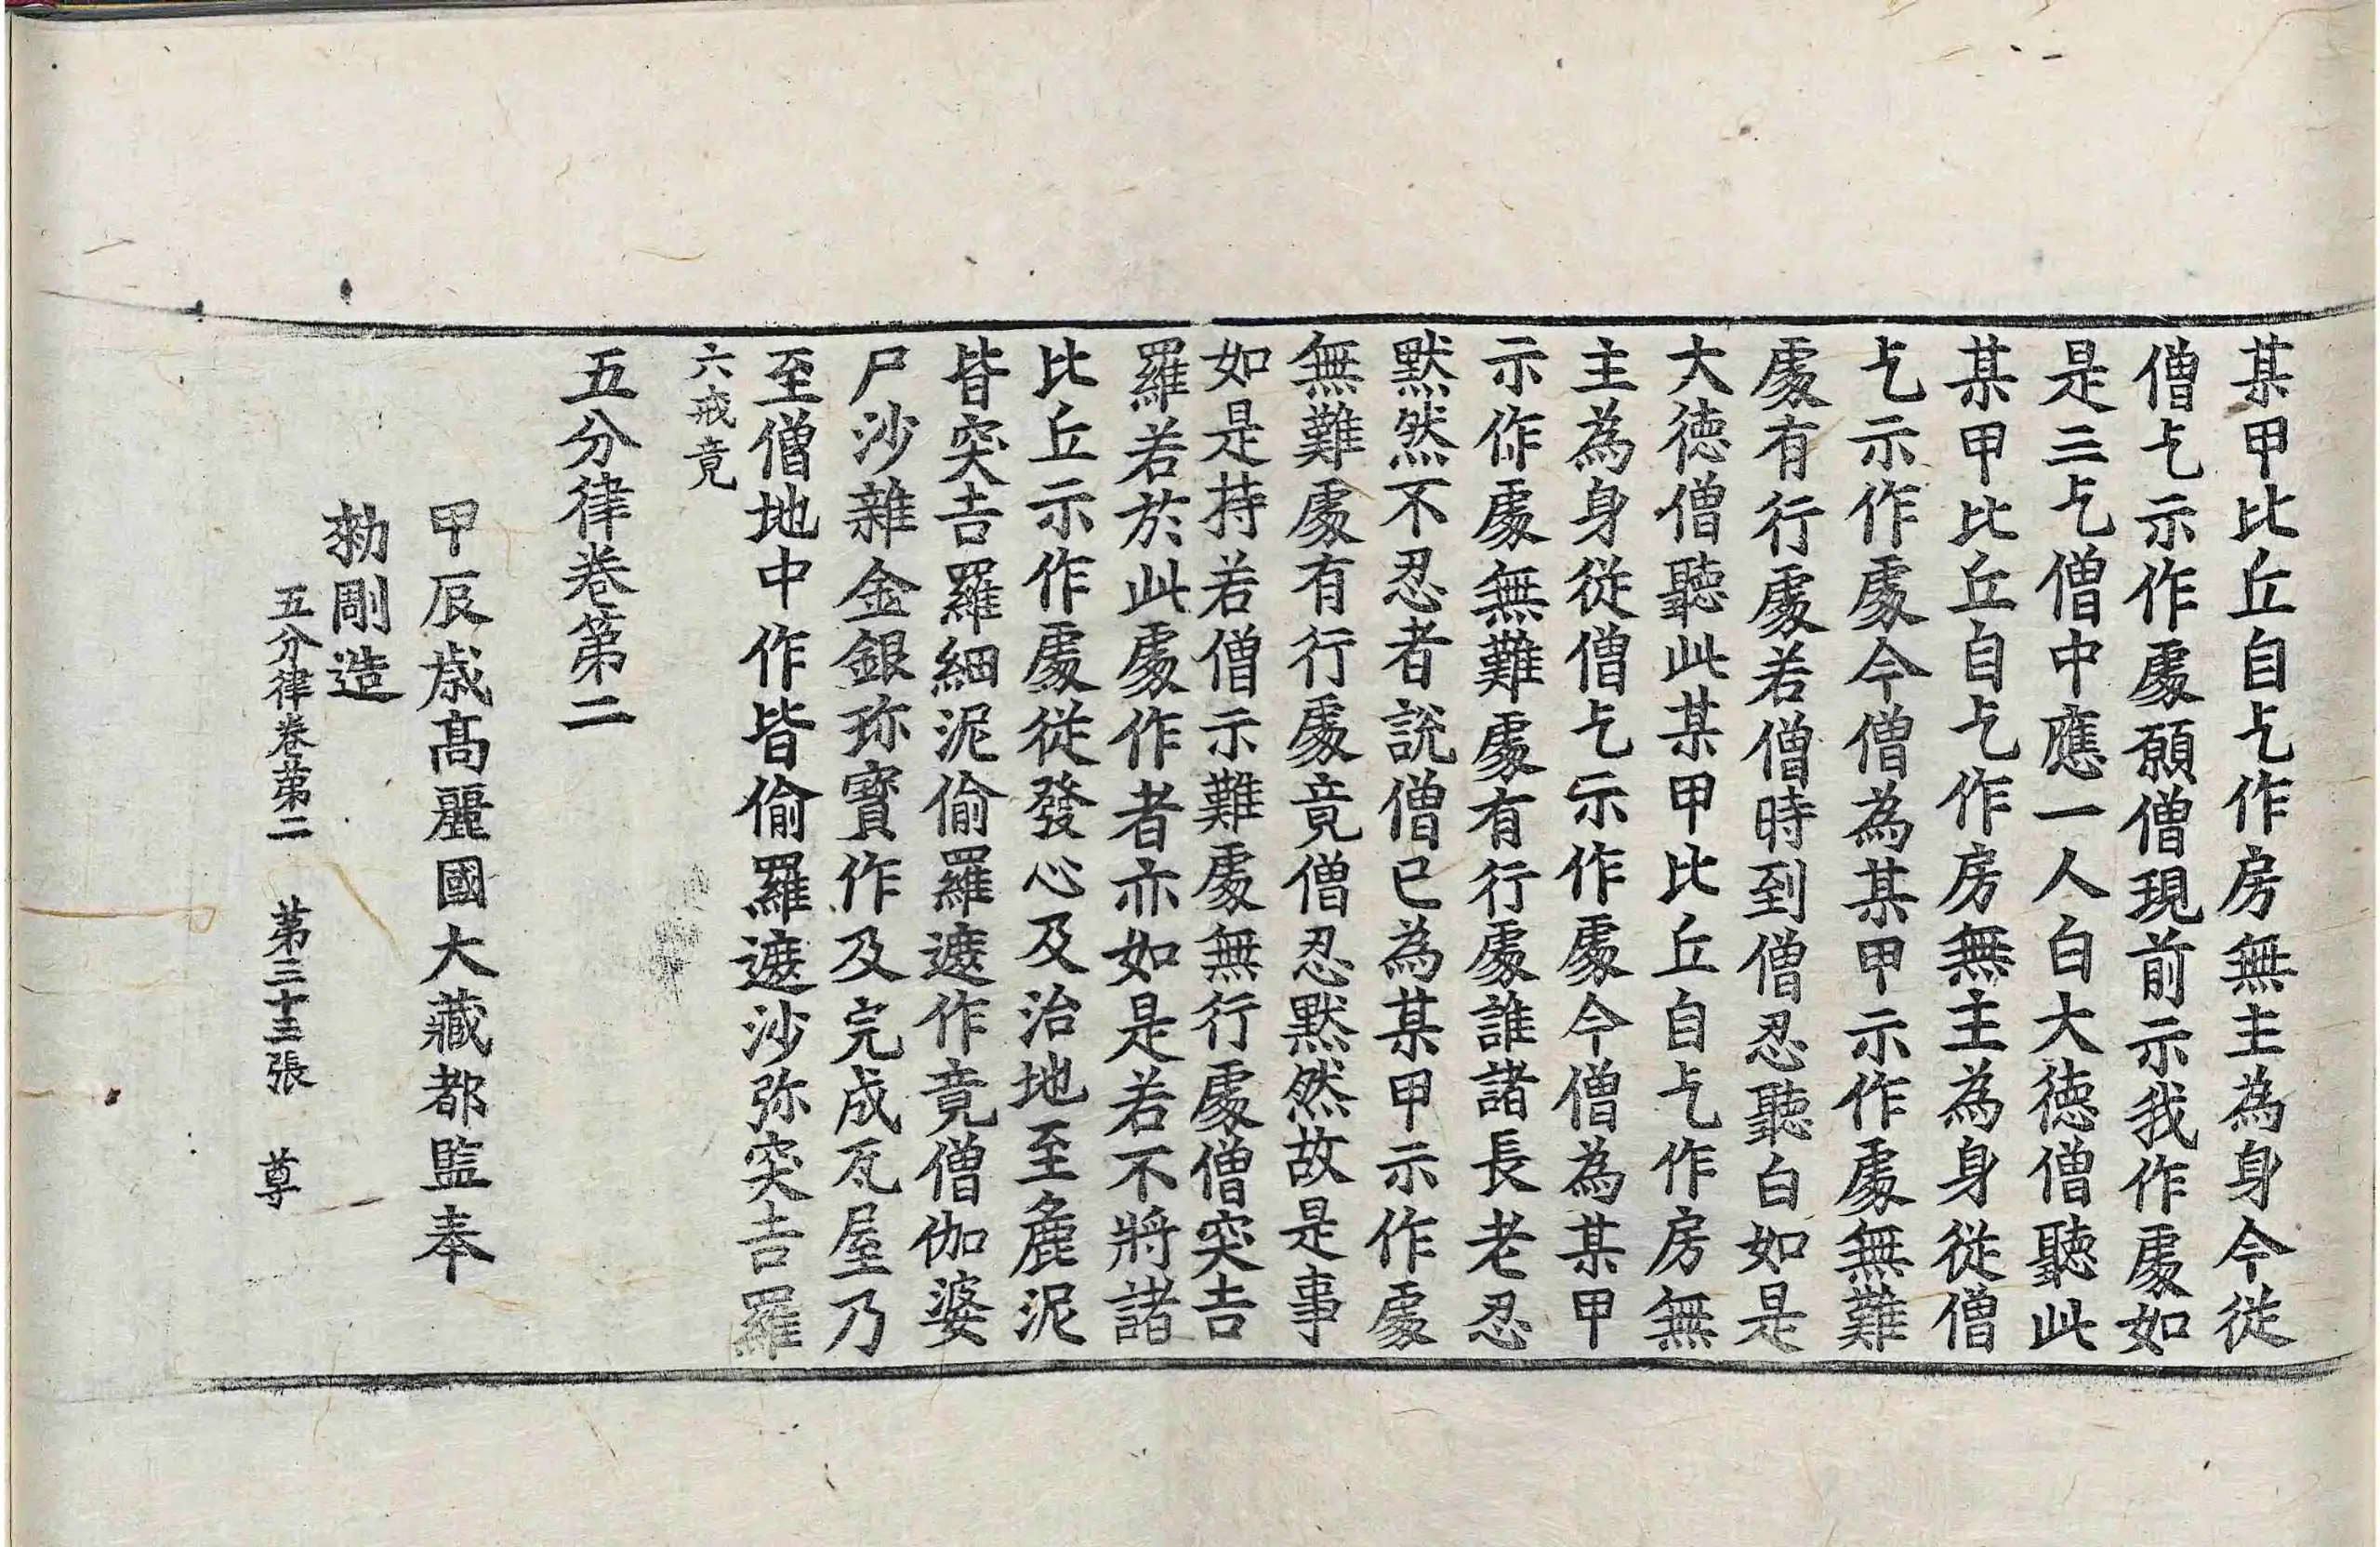 某甲比丘自乞作房無主為身今從
僧乞示作處願僧現前示我作處如
是三乞僧中應一人白大德僧聽此
某甲比丘自乞作房無主為身從僧
乞示作處今僧為某甲示作處無難
處有行處若僧時到僧忍聽白如是
大德僧聽此某甲比丘自乞作房無
主為身從僧乞示作處今僧為某甲
示作處無難處有行處誰諸長老忍
默然不忍者說僧已為某甲示作處
無難處有行處竟僧忍默然故是事
如是持若僧示難處無行處僧突吉
羅若於此處作者亦如是若不將諸
比丘示作處從發心及治地至麁泥
皆突吉羅細泥偷羅遮作竟僧伽婆
尸沙雜金銀珎寶作及完成瓦屋乃
至僧地中作皆偷羅遮沙弥突吉羅
六戒竟
五分律卷第二
甲辰歲高麗國大藏都監奉
勅彫造
五分律卷第二 第三十三張 尊